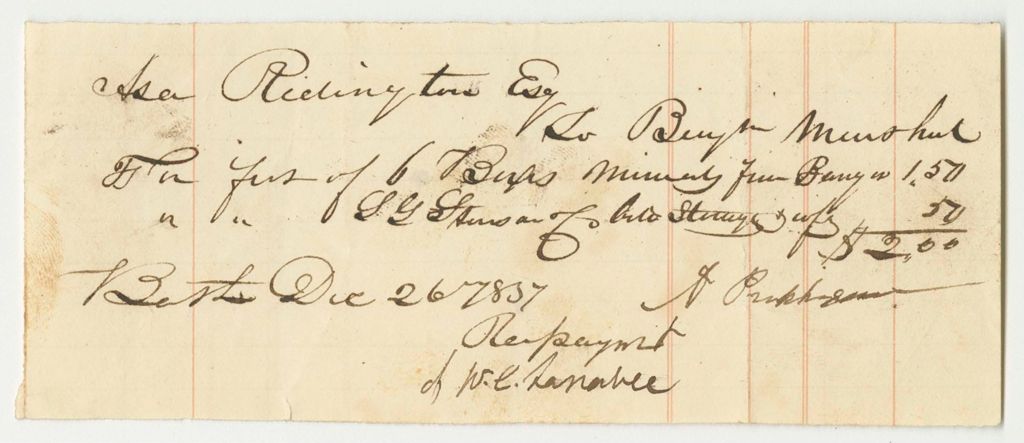 Asa Redington Esq
To Benjn Marshal
For frt of 6 Boxes Minerals from Bangor 1.50
" " L G Stevens of bill Storage & wfg 50
$ 2.00
Bath Dec 26 1837
Rec payment
of W. C. Larrabee